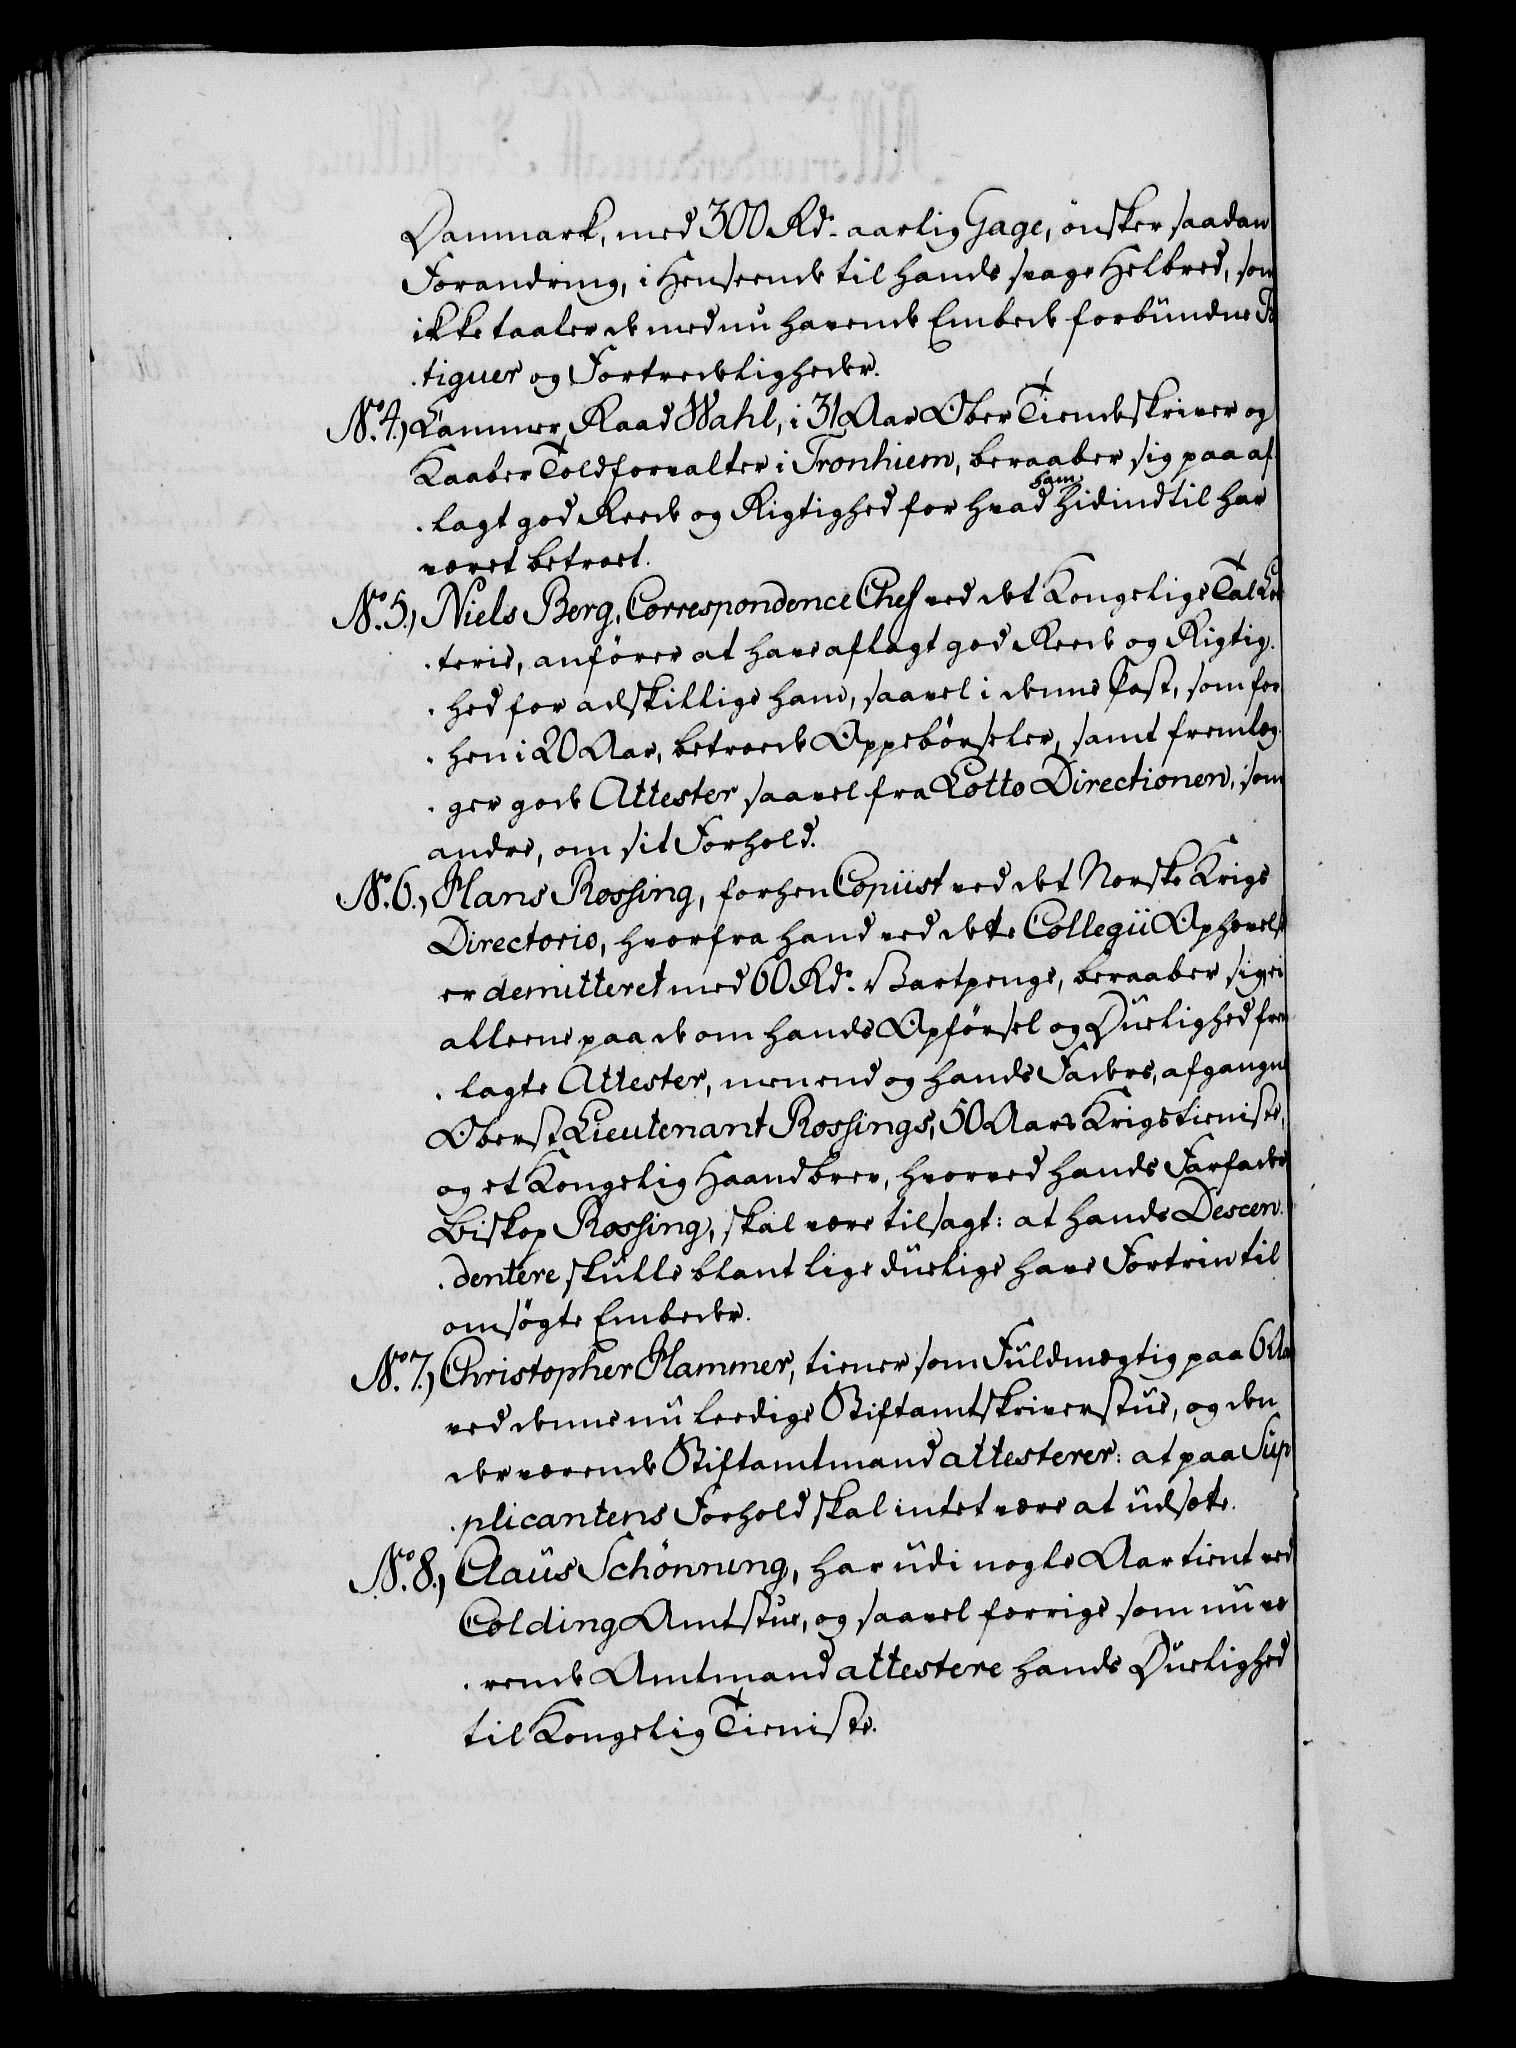 Danmark, med 300 Rd. aarlig Gage, ønsker saadan
Forandring, i Henseende til hands svage Helbred, som
ikke taaler de med nu havende Embede forbundne Fa
tiguer og Fortredeligheder.
No. 4.) Kammer Raad Wahl, i 31 Aar Ober Tiendeskriver og
Kaaber Toldforvalter i Tronhiem, beraaber sig paa af
lagt god Reede og Rigtighed for hvad ham hidindtil har
været betroet.
No. 5.) Niels Berg, Correspondence Chef ved det Kongelige Tal Lot
terie, anfører at have aflagt god Reede og Rigtig
hed for adskillige ham, saavel i denne Post, som for
hen i 20 Aar, betroede Oppebørseler, samt fremlæg
ger gode Attester saavel fra Lotto Directionen, som
andre, om sit Forhold.
No. 6.) Hans Rossing, forhen Copiist ved det Norske Krigs
Directorio, hvorfra hand ved dette Collegii Ophævelse
er demitteret med 60 Rd. Vartpenge, beraaber sig ei
alleene paa de om hands Opførsel og Duelighed frem
lagte Attester, men end og hands Faders, afgangne
Oberst Lieutenant Rossings, 50 Aars Krigstieniste,
og et Kongelig Haandbrev, hvorved hands Farfader
Biskop Rossing, skal være tilsagt: at hands Descen
dentere skulle blant lige duelige have Fortrin til
omsøgte Embeder.
No. 7.) Christopher Hammer, tiener som Fuldmægtig paa 6 Aar
ved denne nu leedige Stiftamtskriverstue, og den
derværende Stiftamtmand attesterer: at paa Sup
plicantens Forhold skal intet være at udsætte.
No. 8.) Claus Schönning, har udi nogle Aar tient ved
Colding Amtstue, og saavel forrige som nu væ
rende Amtmand attestere hands Duelighed
til Kongelig Tieniste.